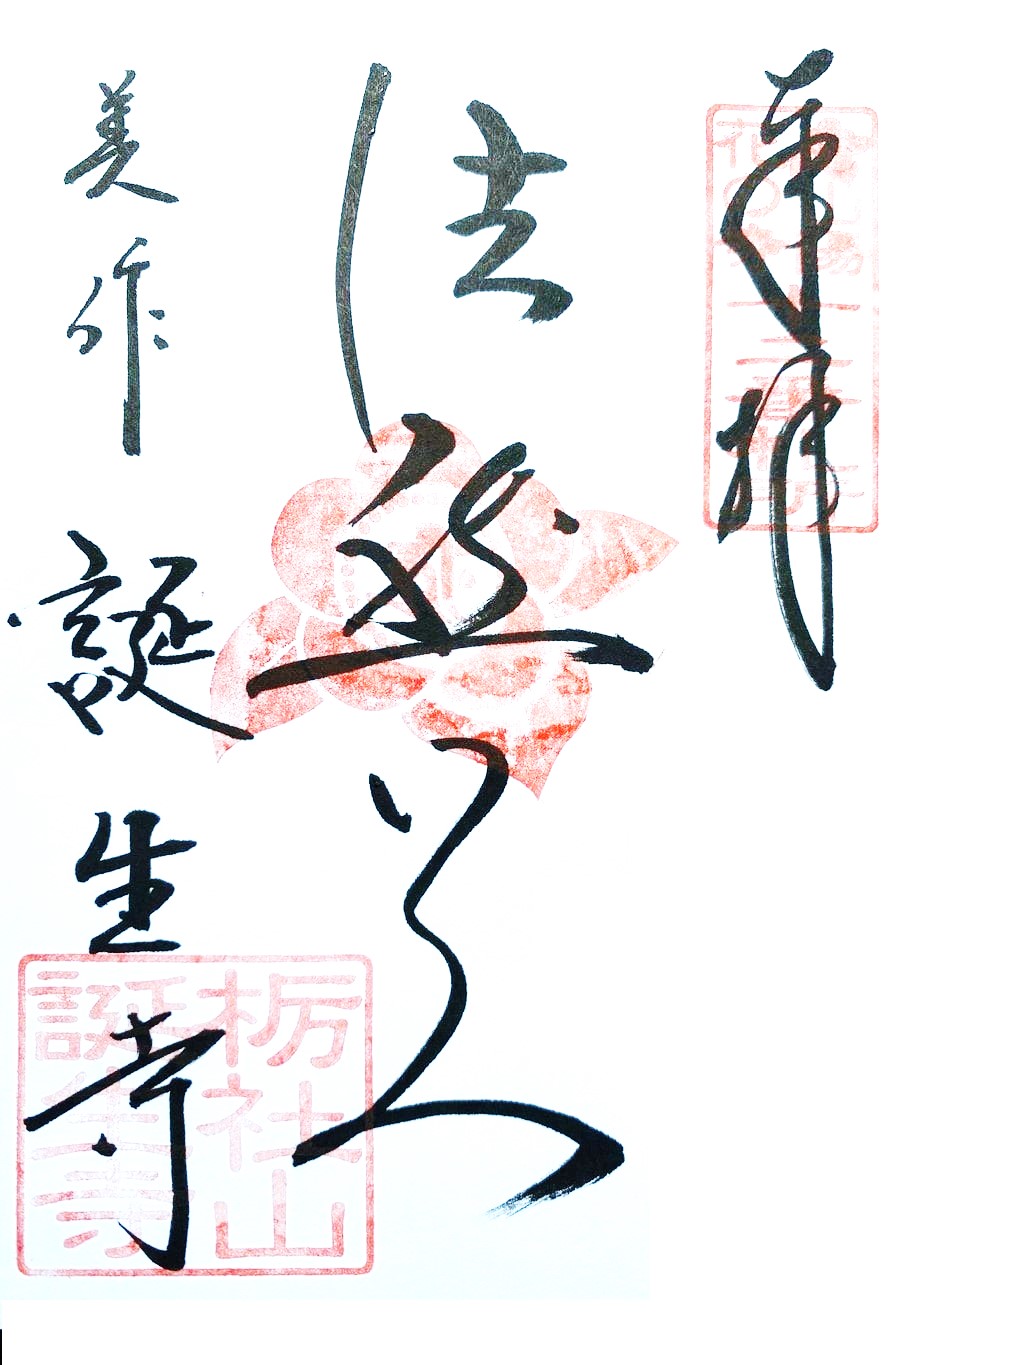 奉拝
法然
美作
誕生寺
栃社山
誕生寺